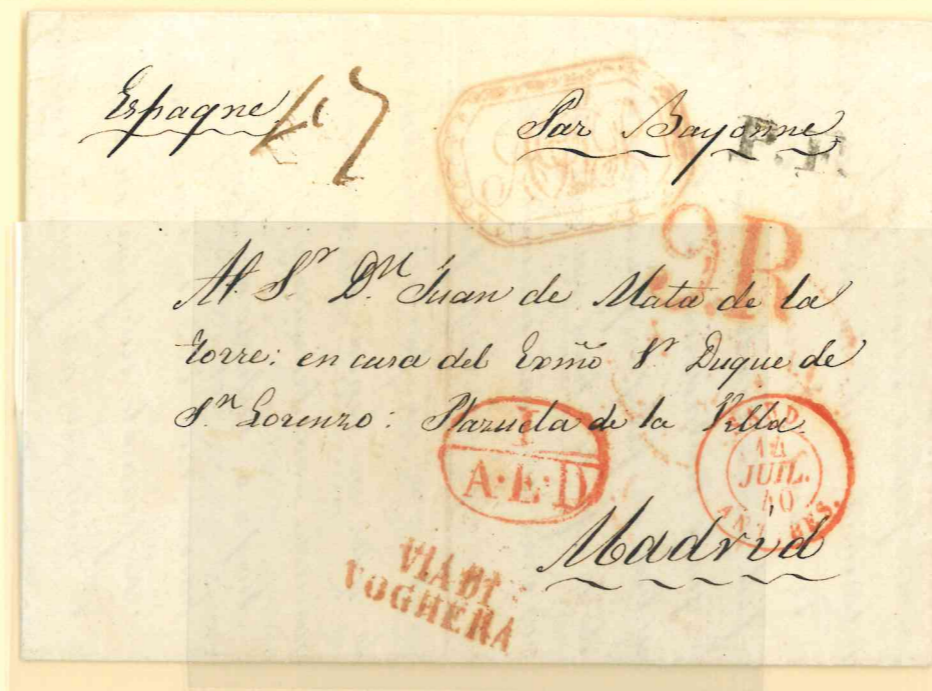 Espagne Par Bayonne
P.P.
9R
Al Sr Dn Juan de Mata de la
Torre: en casa del Exmõ Sr Duque de
Sn Lorenzo: Plazuela de la Villa
I
A·E·D
14
JUIL.
40
Madrid
VIA DI
VOGHERA